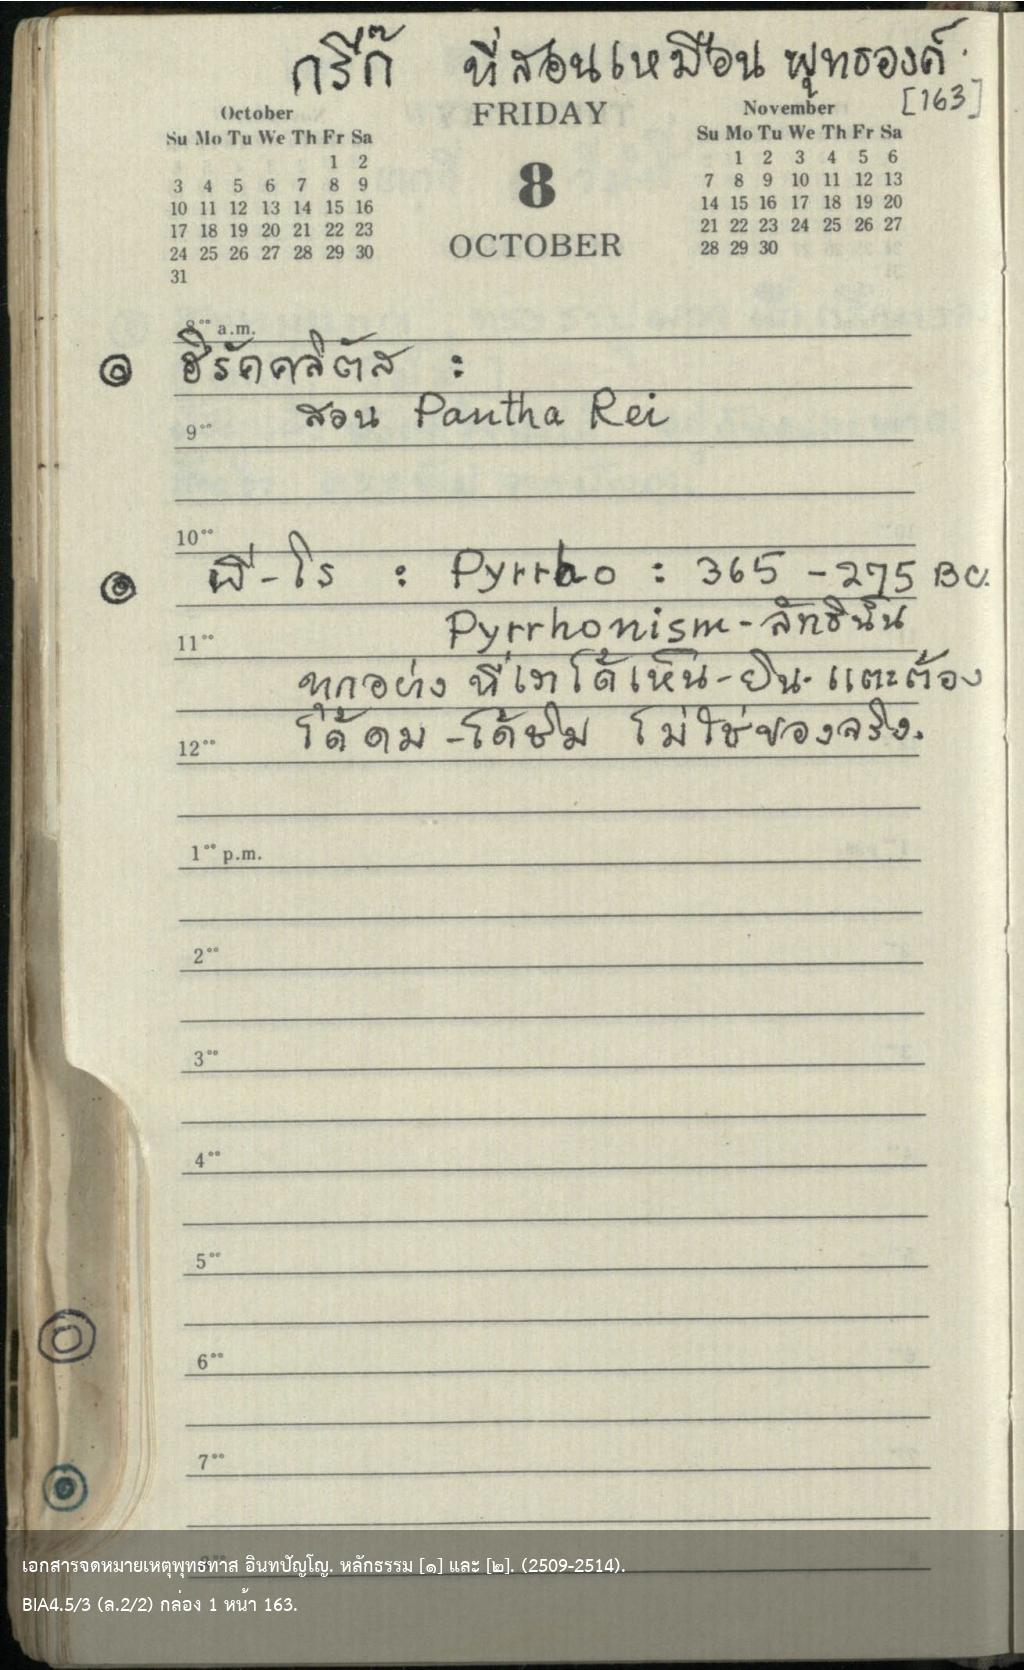 กรีก๊ ที่สอนเหมือนพุทธองค์.
[163]
October
Su Mo Tu We Th Fr Sa
1 2
3 4 5 6 7 8 9
10 11 12 13 14 15 16
17 18 19 20 21 22 23
24 25 26 27 28 29 30
31
FRIDAY
8
OCTOBER
November
Su Mo Tu We Th Fr Sa
1 2 3 4 5 6
7 8 9 10 11 12 13
14 15 16 17 18 19 20
21 22 23 24 25 26 27
28 29 30
8⁰⁰ a.m.
๑ ฮีรัคคลิตัส :
9⁰⁰ สอน Pantha Rei
10⁰⁰
พี่-โร : Pyrrho : 365 - 275 BC.
11⁰⁰ Pyrrhonism - ลัทธินั้น
ทุกอย่าง ที่เราได้เห็น - ยิน - แตะต้อง
12⁰⁰ ได้ดม - ได้ชิม ไม่ใช่ของจริง.
1⁰⁰ p.m.
2⁰⁰
3⁰⁰
4⁰⁰
5⁰⁰
6⁰⁰
7⁰⁰
เอกสารจดหมายเหตุพุทธทาส อินทปัญโญ. หลักธรรม [๑] และ [๒]. (2509-2514).
BIA4.5/3 (ล.2/2) กล่อง 1 หน้า 163.